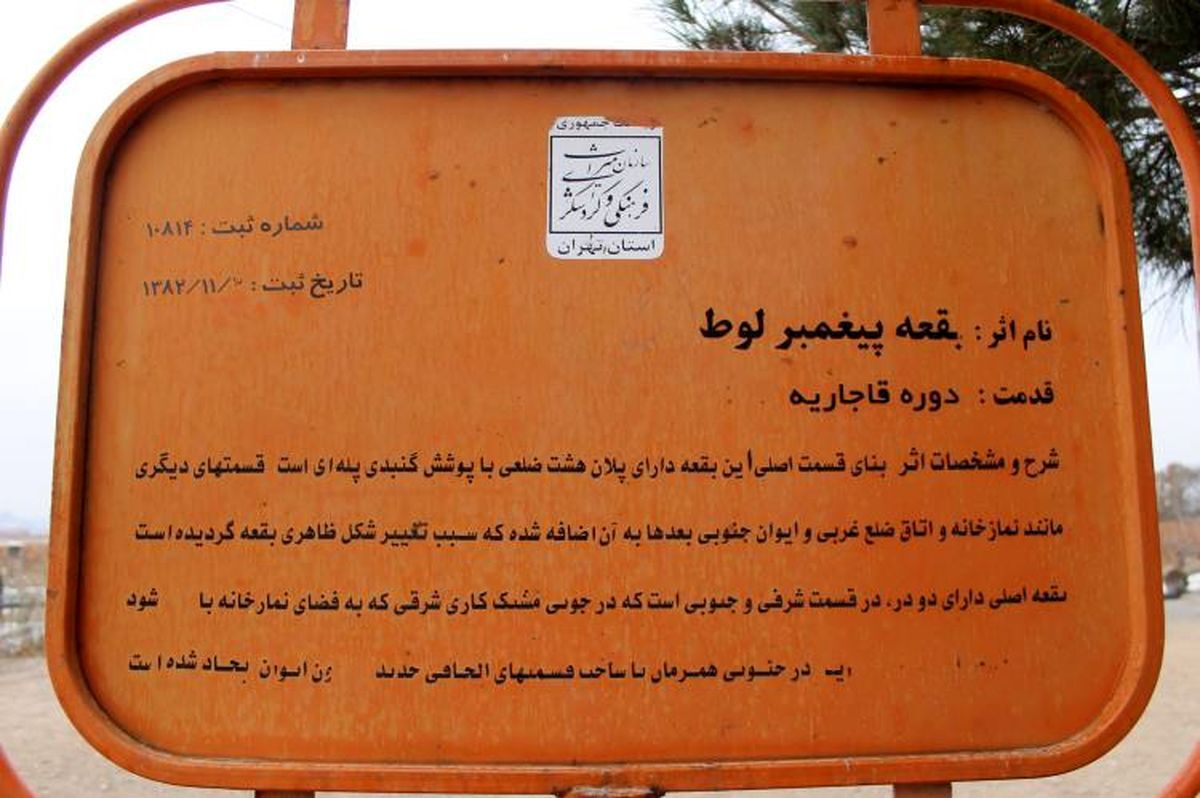 ریاست جمهوری
سازمان میراث
فرهنگی و گردشگری
استان تهران
شماره ثبت : ۱۰۸۱۴
تاریخ ثبت : /۱۳۸۲/۱۱
نام اثر : بقعه پیغمبر لوط
قدمت : دوره قاجاریه
شرح و مشخصات اثر بنای قسمت اصلی این بقعه دارای پلان هشت ضلعی با پوشش گنبدی پله ای است قسمتهای دیگری
مانند نمازخانه و اتاق ضلع غربی و ایوان جنوبی بعدها به آن اضافه شده که سبب تغییر شکل ظاهری بقعه گردیده است
بقعه اصلی دارای دو در، در قسمت شرقی و جنوبی است که در چوبی مشبک کاری شرقی که به فضای نمازخانه با شود
در جنوبی همزمان با ساخت قسمتهای الحاقی جدید ایوان شده است